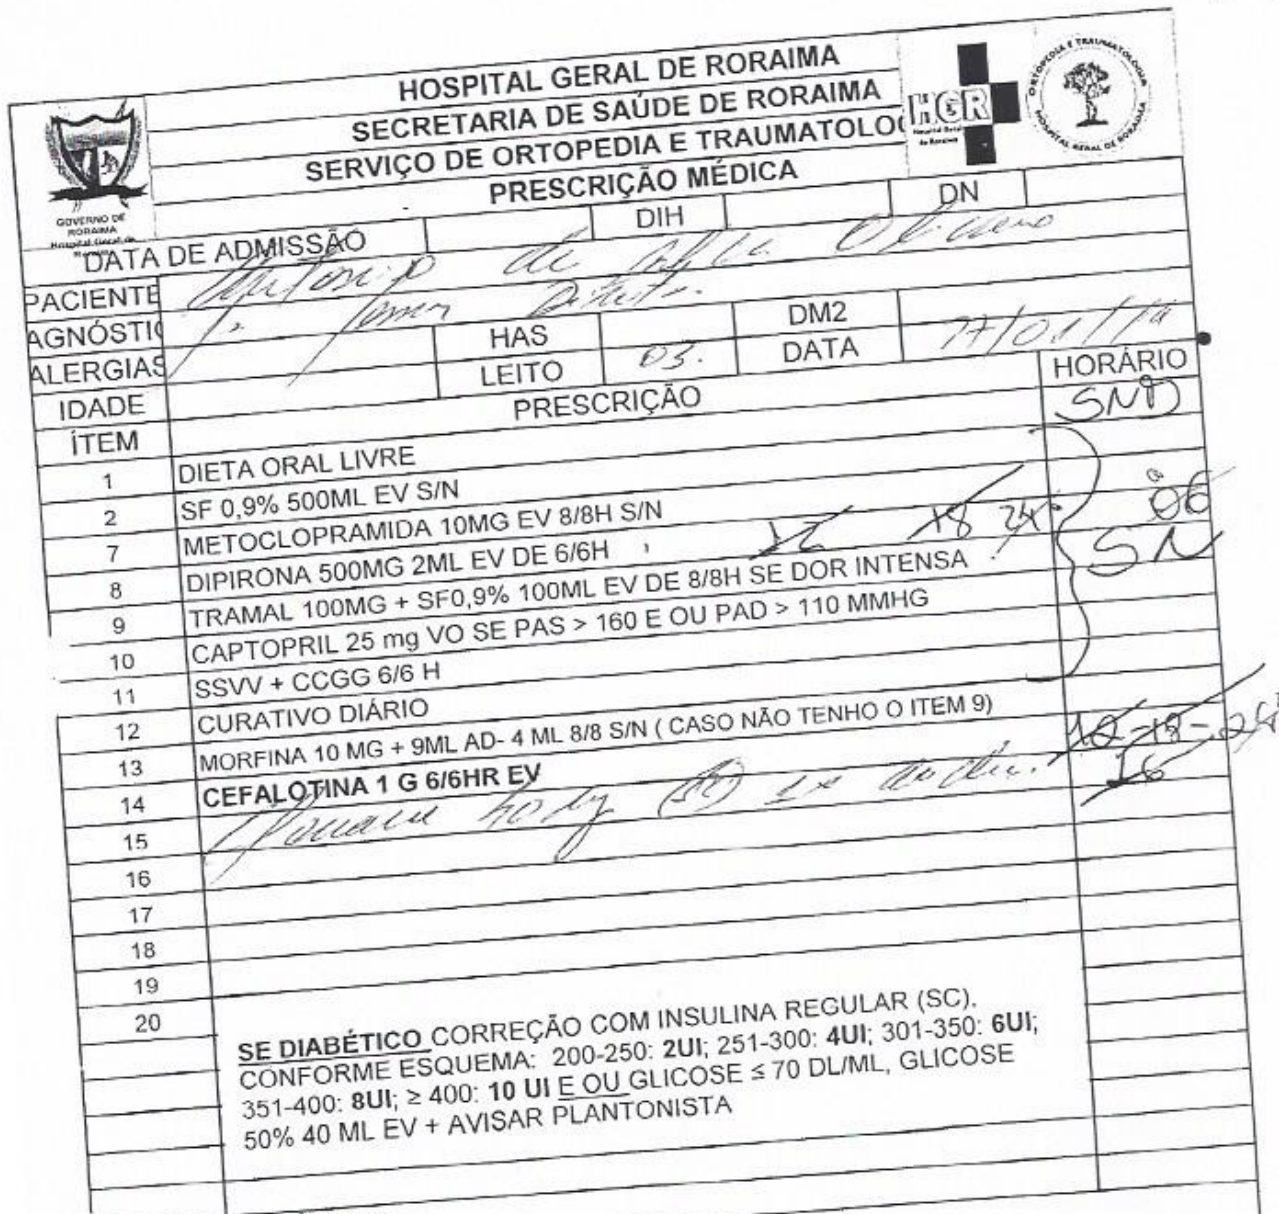 HOSPITAL GERAL DE RORAIMA
SECRETARIA DE SAÚDE DE RORAIMA
SERVIÇO DE ORTOPEDIA E TRAUMATOLO
PRESCRIÇÃO MÉDICA
GOVERNO DE
RORAIMA
Hospital Geral de
HGR
Hospital Geral
de Roraima
ORTOPEDIA E TRAUMATOLOGIA
HOSPITAL GERAL DE RORAIMA
DATA DE ADMISSÃO DIH DN
PACIENTE Antonio de
AGNÓSTIC
ALERGIAS HAS DM2
IDADE LEITO 03. DATA
ÍTEM PRESCRIÇÃO HORÁRIO
1 DIETA ORAL LIVRE SND
2 SF 0,9% 500ML EV S/N
7 METOCLOPRAMIDA 10MG EV 8/8H S/N
8 DIPIRONA 500MG 2ML EV DE 6/6H 12 18 24 06
9 TRAMAL 100MG + SF0,9% 100ML EV DE 8/8H SE DOR INTENSA SN
10 CAPTOPRIL 25 mg VO SE PAS > 160 E OU PAD > 110 MMHG
11 SSVV + CCGG 6/6 H
12 CURATIVO DIÁRIO
13 MORFINA 10 MG + 9ML AD- 4 ML 8/8 S/N ( CASO NÃO TENHO O ITEM 9)
14 CEFALOTINA 1 G 6/6HR EV
15
16
17
18
19
20
SE DIABÉTICO CORREÇÃO COM INSULINA REGULAR (SC).
CONFORME ESQUEMA: 200-250: 2UI; 251-300: 4UI; 301-350: 6UI;
351-400: 8UI; ≥ 400: 10 UI E OU GLICOSE ≤ 70 DL/ML, GLICOSE
50% 40 ML EV + AVISAR PLANTONISTA